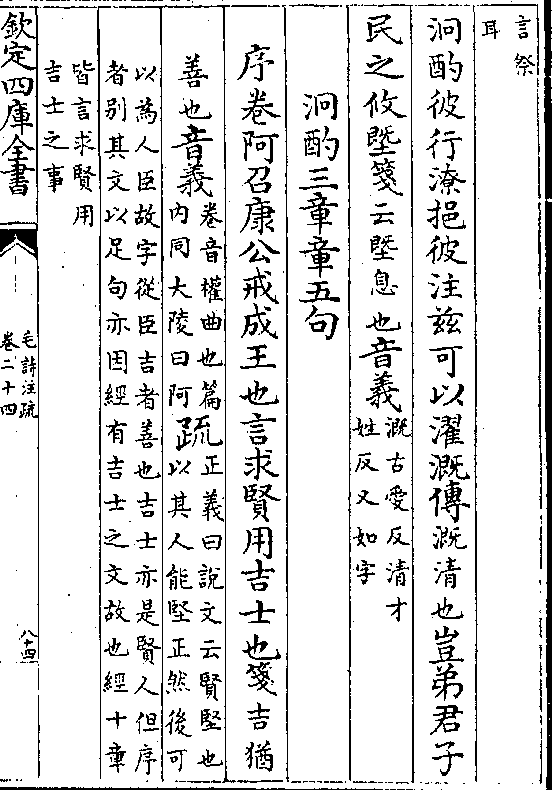 言祭
耳
泂酌彼行潦挹彼注兹可以濯溉傳溉清也豈弟君子
民之攸墍箋云墍息也音義
溉古愛反清才
姓反又如字
泂酌三章章五句
序卷阿召康公戒成王也言求賢用吉士也箋吉猶
善也音義
卷音權曲也篇
内同大陵曰阿
疏
正義曰說文云賢堅也
以其人能堅正然後可
以為人臣故字從臣吉者善也吉士亦是賢人但序
者别其文以足句亦因經有吉士之文故也經十章
皆言求賢用
吉士之事
欽定四庫全書
毛詩注疏
卷二十四
八十四